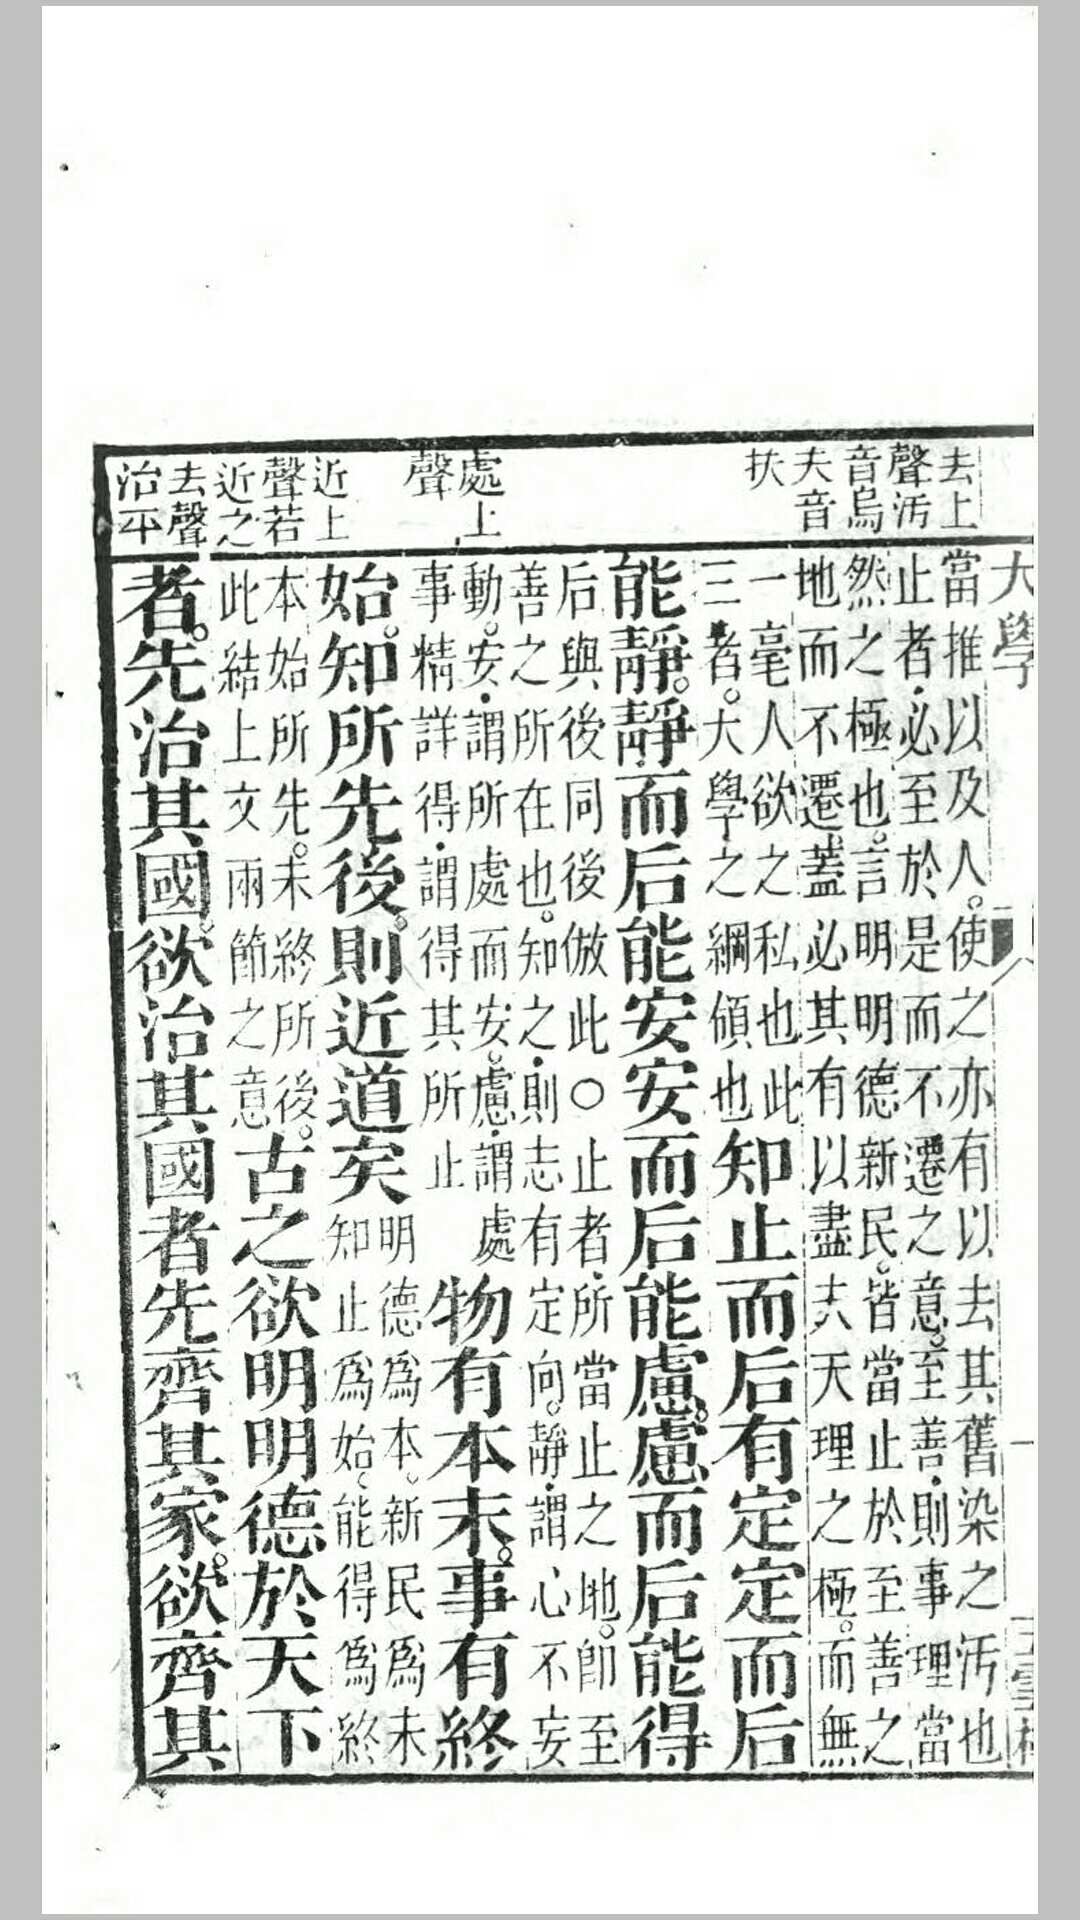 去上
聲汚
音烏
夫音
扶
處上
聲
近上
聲若
近之
去聲
治平
大學
一
當推以及人。使之亦有以去其舊染之汚也
止者、必至於是而不遷之意。至善、則事理當
然之極也。言明明德新民。皆當止於至善之
地而不遷。蓋必其有以盡夫天理之極。而無
一毫人欲之私也此
三者。大學之綱領也
知止而后有定定而后
能靜。靜而后能安安而后能慮。慮而后能得
后與後同後倣此○止者、所當止之地。即至
善之所在也。知之、則志有定向。靜、謂心不妄
動。安、謂所處而安。慮、謂處
事精詳得、謂得其所止
物有本末。事有終
始。知所先後。則近道矣
明德爲本。新民爲末
知止爲始、能得爲終
本始所先。末終所後。
此結上文兩節之意
古之欲明明德於天下
者。先治其國。欲治其國者先齊其家。欲齊其